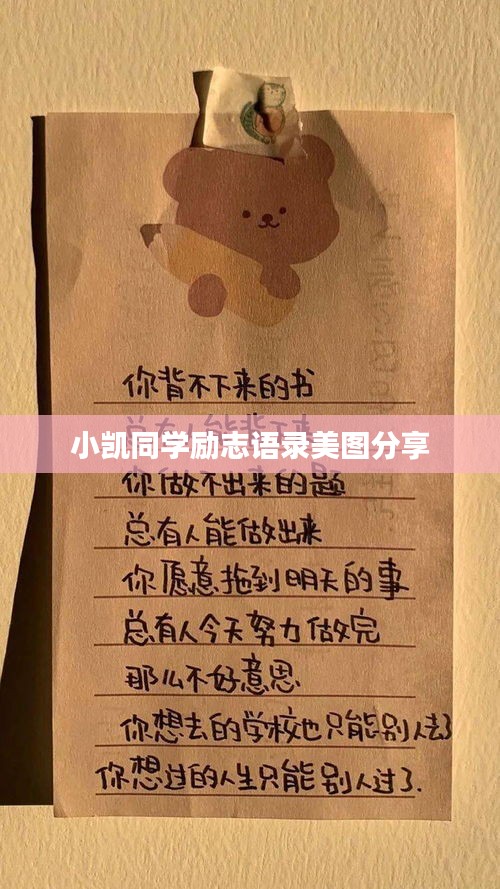 你背不下来的书
总有人能背下来
小凯同学励志语录美图分享
你做不出来的题
总有人能做出来
你愿意拖到明天的事
总有人今天努力做完
那么不好意思
你想去的学校也只能别人去了
你想过的人生只能别人过了.